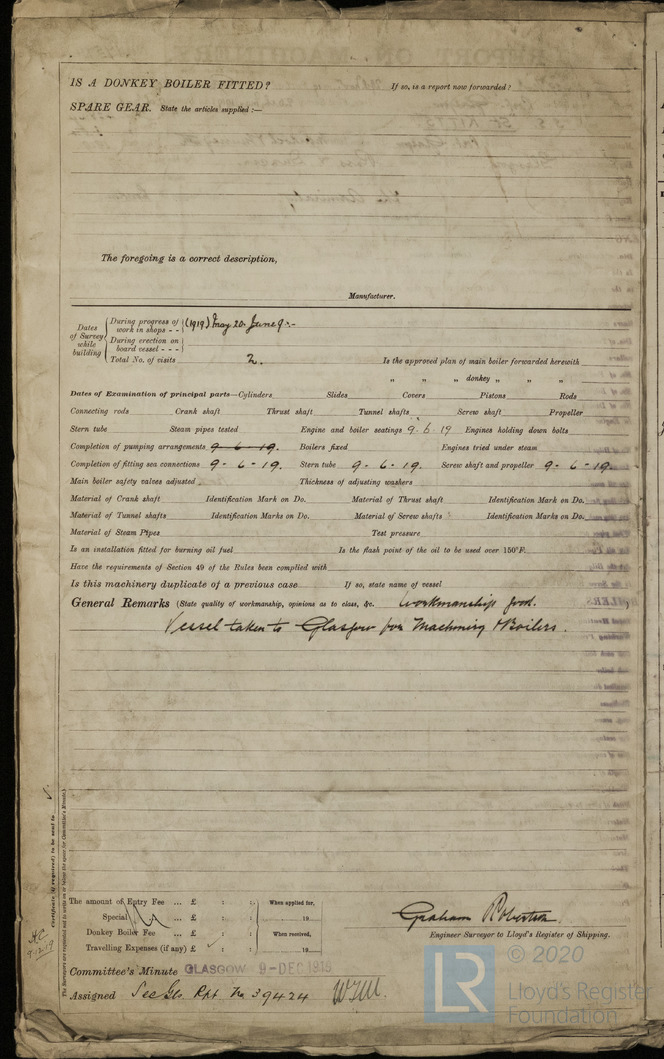 IS A DONKEY BOILER FITTED? If so, is a report now forwarded?
SPARE GEAR. State the articles supplied:—
The foregoing is a correct description,
Manufacturer.
Dates of Survey while building
During progress of work in shops - - (1919) May 20. June 9.-
During erection on board vessel - - -
Total No. of visits 2. Is the approved plan of main boiler forwarded herewith
" " " donkey " " "
Dates of Examination of principal parts—Cylinders Slides Covers Pistons Rods
Connecting rods Crank shaft Thrust shaft Tunnel shafts Screw shaft Propeller
Stern tube Steam pipes tested Engine and boiler seatings 9.6.19 Engines holding down bolts
Completion of pumping arrangements 9-6-19. Boilers fixed Engines tried under steam
Completion of fitting sea connections 9-6-19. Stern tube 9-6-19. Screw shaft and propeller 9-6-19.
Main boiler safety valves adjusted Thickness of adjusting washers
Material of Crank shaft Identification Mark on Do. Material of Thrust shaft Identification Mark on Do.
Material of Tunnel shafts Identification Marks on Do. Material of Screw shafts Identification Marks on Do.
Material of Steam Pipes Test pressure
Is an installation fitted for burning oil fuel Is the flash point of the oil to be used over 150°F.
Have the requirements of Section 49 of the Rules been complied with
Is this machinery duplicate of a previous case If so, state name of vessel
General Remarks (State quality of workmanship, opinions as to class, &c. Workmanship good. )
Vessel taken to Glasgow for Machinery & Boilers.
Certificate (if required) to be sent to
The Surveyors are requested not to write on or below the space for Committee's Minute.
The amount of Entry Fee ... £ : : When applied for,
Special ... £ : : 19
Donkey Boiler Fee ... £ : : When received,
Travelling Expenses (if any) £ : : 19
Graham Robertson
Engineer Surveyor to Lloyd's Register of Shipping.
Committee's Minute GLASGOW 9-DEC 1919
Assigned See Gls. Rpt. No 39424
© 2020
LR
Lloyd's Register
Foundation